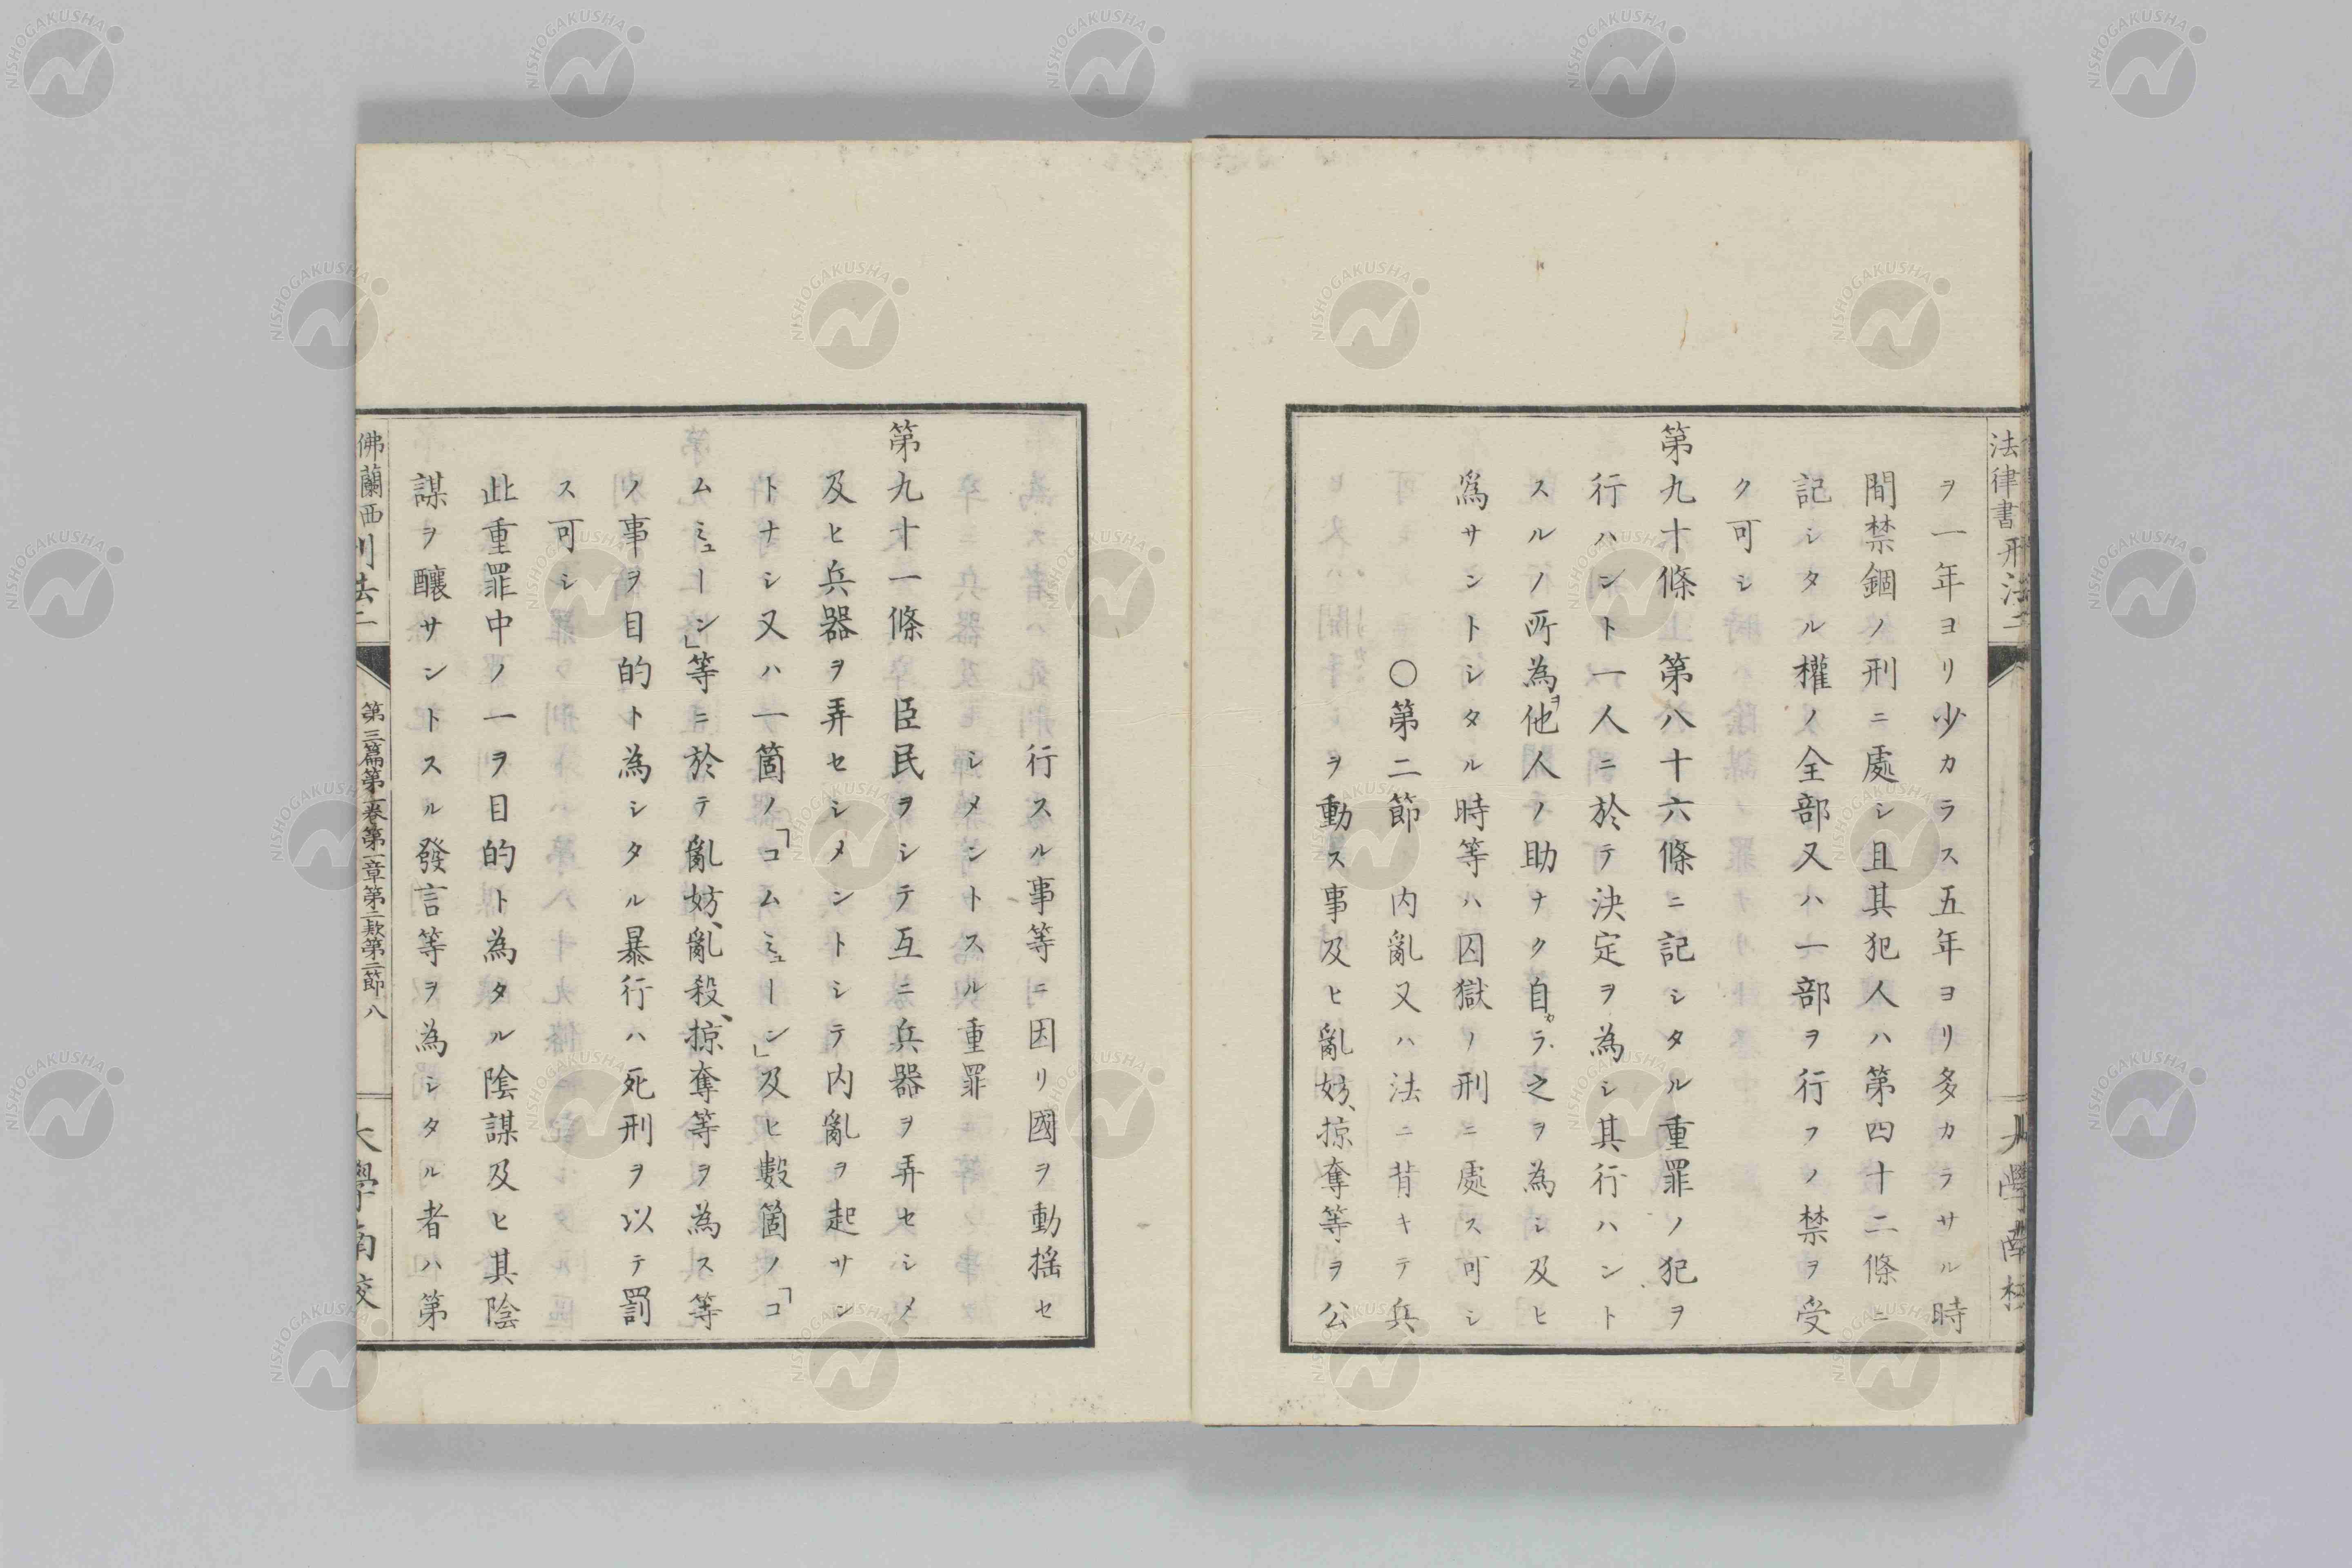 法律書刑法二
大學南校
ヲ一年ヨリ少カラス五年ヨリ多カラサル時
間禁錮ノ刑ニ處シ且其犯人ハ第四十二條ニ
記シタル權ノ全部又ハ一部ヲ行フノ禁ヲ受
ク可シ
第九十條　第八十六條ニ記シタル重罪ノ犯ヲ
行ハント一人ニ於テ決定ヲ為シ其行ハント
スルノ所為ヲ他人ノ助ナク自カラ之ヲ為シ及ヒ
爲サントシタル時等ハ囚獄ノ刑ニ處ス可シ
〇第二節　内亂又ハ法ニ背キテ兵
ヲ動ス事及ヒ亂妨、掠奪等ヲ公
行スル事等ニ因リ國ヲ動揺セ
シメントスル重罪
第九十一條　臣民ヲシテ互ニ兵器ヲ弄セシメ
及ヒ兵器ヲ弄セシメントシテ内亂ヲ起サン
トナシ又ハ一箇ノ「コムミューン」及ヒ數箇ノ「コ
ムミューン」等ニ於テ亂妨、亂殺、掠奪等ヲ為ス等
ノ事ヲ目的ト為シタル暴行ハ死刑ヲ以テ罰
ス可シ
此重罪中ノ一ヲ目的ト為タル陰謀及ヒ其陰
謀ヲ醸サントスル發言等ヲ為シタル者ハ第
佛蘭西刑法二
第三篇第一巻第一章第二款第二節　八
大學南校
NISHOGAKUSHA